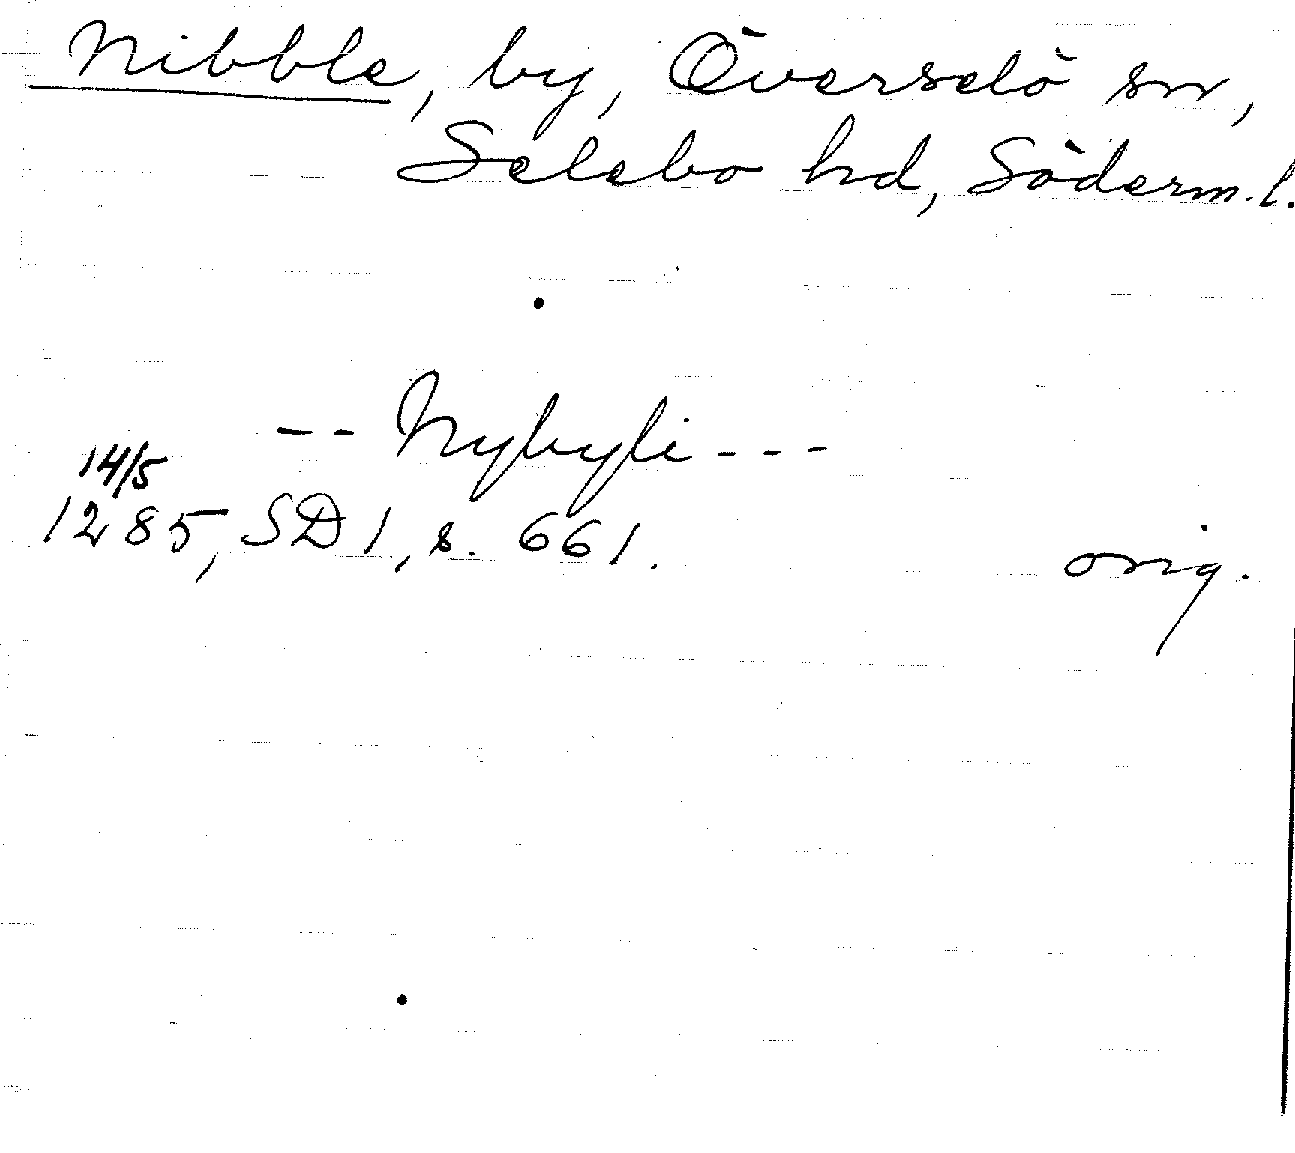 Nibble, by, Överselö sn,
Selebo hd, Söderm. l.
-- Nybyli ---
14/5
1285, SD 1, s. 661.
orig.